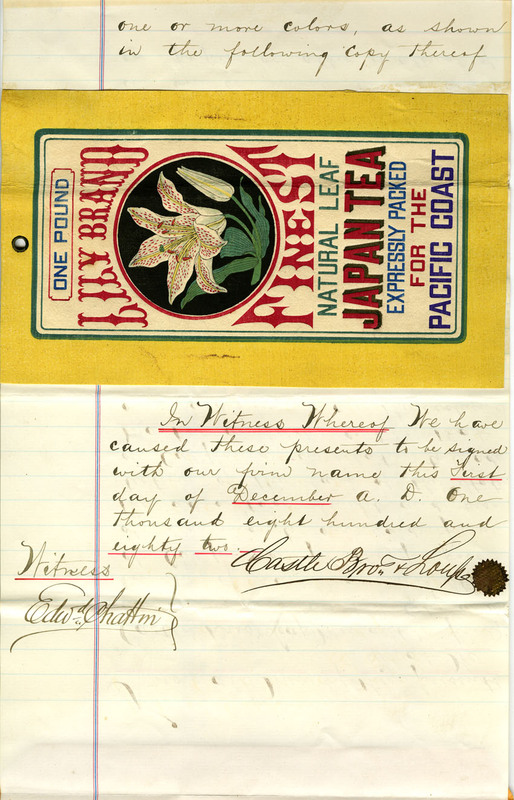 one or more colors, as shown
in the following copy thereof
ONE POUND
LILY BRAND
FINEST
NATURAL LEAF
JAPAN TEA
EXPRESSLY PACKED
FOR THE
PACIFIC COAST
In Witness Whereof We have
caused these presents to be signed
with our firm name this First
day of December A. D. One
thousand eight hundred and
eighty two.
Castle Bros. &
Witness
Edwd. Chattin